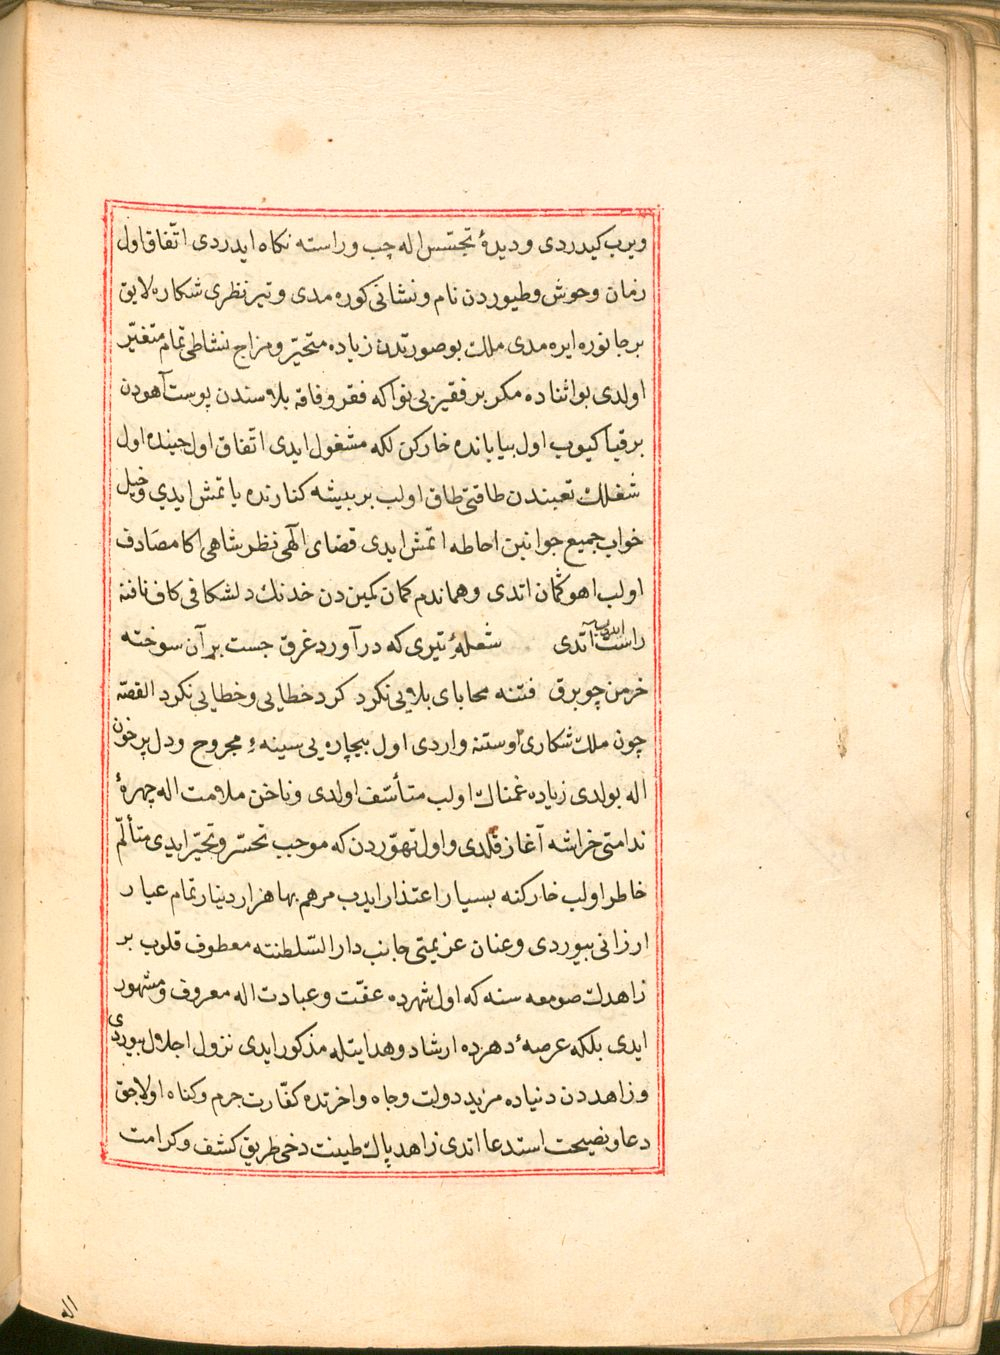 ویرب کیدردی و دیدهٔ تجسّس اله چب و راسته نکاه ایدردی اتّفاقا اول
زمان وحوش و طیوردن نام و نشانی کوره مدی و تیر نظری شکاره لایق
بر جانوره ایره مدی ملک بو صورتدن زیاده متحیّر و مزاج نشاطی تمام متغیّر
اولدی بو اثناده مکر بر فقیر بی نوا که فقر و فاقه بلاسندن پوست آهودن
بر قبا کیوب اول بیابانده خارکن لکه مشغول ایدی اتّفاق اول حینده اول
شغلک تعبندن طاقتی طاق اولب بر بیشه کنارنده یاتمش ایدی و خیل
خواب جمیع جوانبن احاطه اتمش ایدی قضای الٰهی نظر شاهی اکا مصادف
اولب اهو کمان اتدی و هماندم کمان کمین دن خدنک دلشکافی کاف نافنه
راست ایدب آتدی شعلهٔ تیری که در آورد غرق جست بر آن سوخته
خرمن چو برق فتنه محابای بلایی نکرد کرد خطایی و خطایی نکرد القصّه
چون ملک شکاری اوستنه واردی اول بیچاره یی سینهء مجروح و دل پر خون
اله بولدی زیاده غمناک اولب متأسّف اولدی و ناخن ملامت اله چهرهٔ
ندامتی خراشه آغاز قلدی و اول تهوّردن که موجب تحسّر و تحیّر ایدی متألّم
خاطر اولب خارکنه بسیار اعتذار ایدب مرهم بها هزار دینار تمام عیار
ارزانی بیوردی و عنان عزیمتی جانب دار السّلطنته معطوف قلوب بر
زاهدک صومعه سنه که اول شهرده عفّت و عبادت اله معروف و مشهور
ایدی بلکه عرصهٔ دهرده ارشاد و هدایتله مذکور ایدی نزول اجلال بیوردی
و زاهددن دنیاده مزید دولت و جاه و اخرتده کفّارت جرم و کناه اولاجق
دعا و نصیحت استدعا اتدی زاهد پاک طینت دخی طریق کشف و کرامت
اله